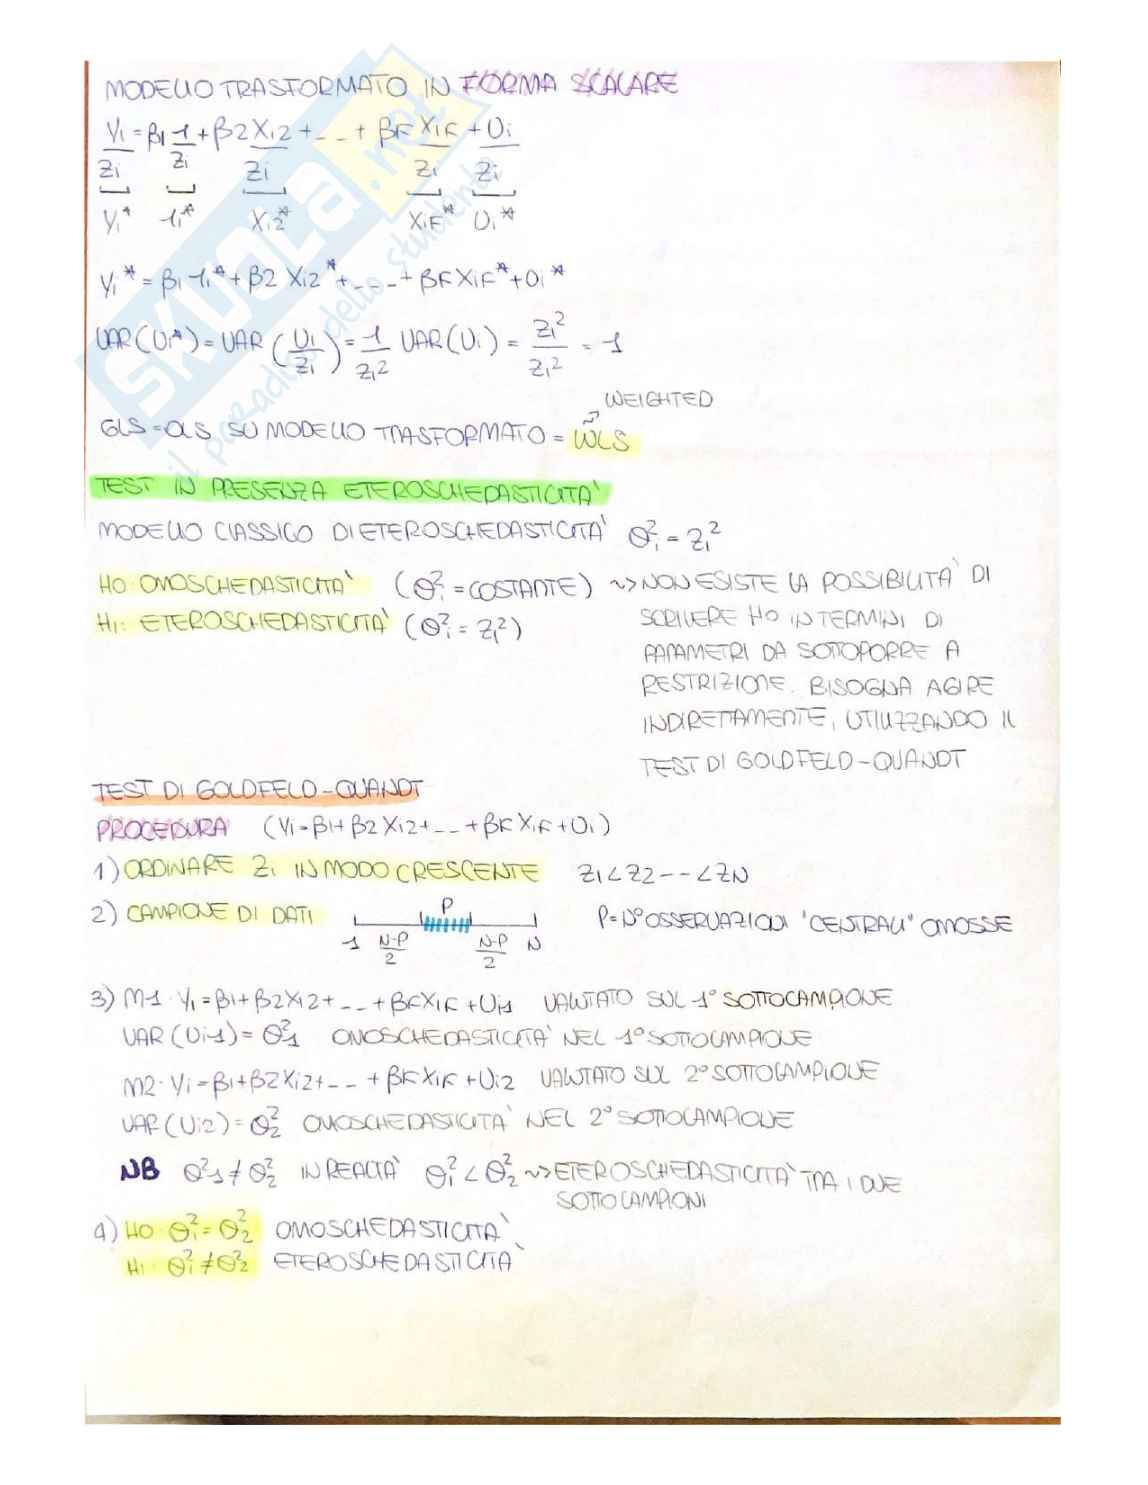 MODELLO TRASFORMATO IN FORMA SCALARE
Yi/Zi = β1 1/Zi + β2 Xi2/Zi + - - . + βK XiK/Zi + Ui/Zi
Yi* 1i* Xi2* XiK* Ui*
Yi* = β1 1i* + β2 Xi2* + - - - + βK XiK* + Ui*
VAR(Ui*) = VAR (Ui/Zi) = 1/Zi² VAR(Ui) = Zi²/Zi² = 1
WEIGHTED
GLS = OLS SU MODELLO TRASFORMATO = WLS
TEST IN PRESENZA ETEROSCHEDASTICITA'
MODELLO CLASSICO DI ETEROSCHEDASTICITA' σ²i = Zi²
H0 OMOSCHEDASTICITA' (σ²i = COSTANTE) ~> NON ESISTE LA POSSIBILITA' DI
H1: ETEROSCHEDASTICITA' (σ²i = Zi²) SCRIVERE H0 IN TERMINI DI
PARAMETRI DA SOTTOPORRE A
RESTRIZIONE. BISOGNA AGIRE
INDIRETTAMENTE, UTILIZZANDO IL
TEST DI GOLDFELD-QUANDT
TEST DI GOLDFELD-QUANDT
PROCEDURA (Yi = β1 + β2 Xi2 + - - . + βK XiK + Ui)
1) ORDINARE Zi IN MODO CRESCENTE Z1 < Z2 - - < ZN
2) CAMPIONE DI DATI P P = N° OSSERVAZIONI "CENTRALI" OMOSSE
1 N-P/2 N-P/2 N
3) M1 · Yi = β1 + β2 Xi2 + - - . + βK XiK + Ui1 VALUTATO SUL 1° SOTTOCAMPIONE
VAR (Ui1) = σ²1 OMOSCHEDASTICITA' NEL 1° SOTTOCAMPIONE
M2 · Yi = β1 + β2 Xi2 + - - + βK XiK + Ui2 VALUTATO SUL 2° SOTTOCAMPIONE
VAR (Ui2) = σ²2 OMOSCHEDASTICITA' NEL 2° SOTTOCAMPIONE
NB σ²1 ≠ σ²2 IN REALTA' σ²1 < σ²2 ~> ETEROSCHEDASTICITA' TRA I DUE
SOTTOCAMPIONI
4) H0 · σ²1 = σ²2 OMOSCHEDASTICITA'
H1 · σ²1 ≠ σ²2 ETEROSCHEDASTICITA'
SKUOLA.net
il paradiso dello studente